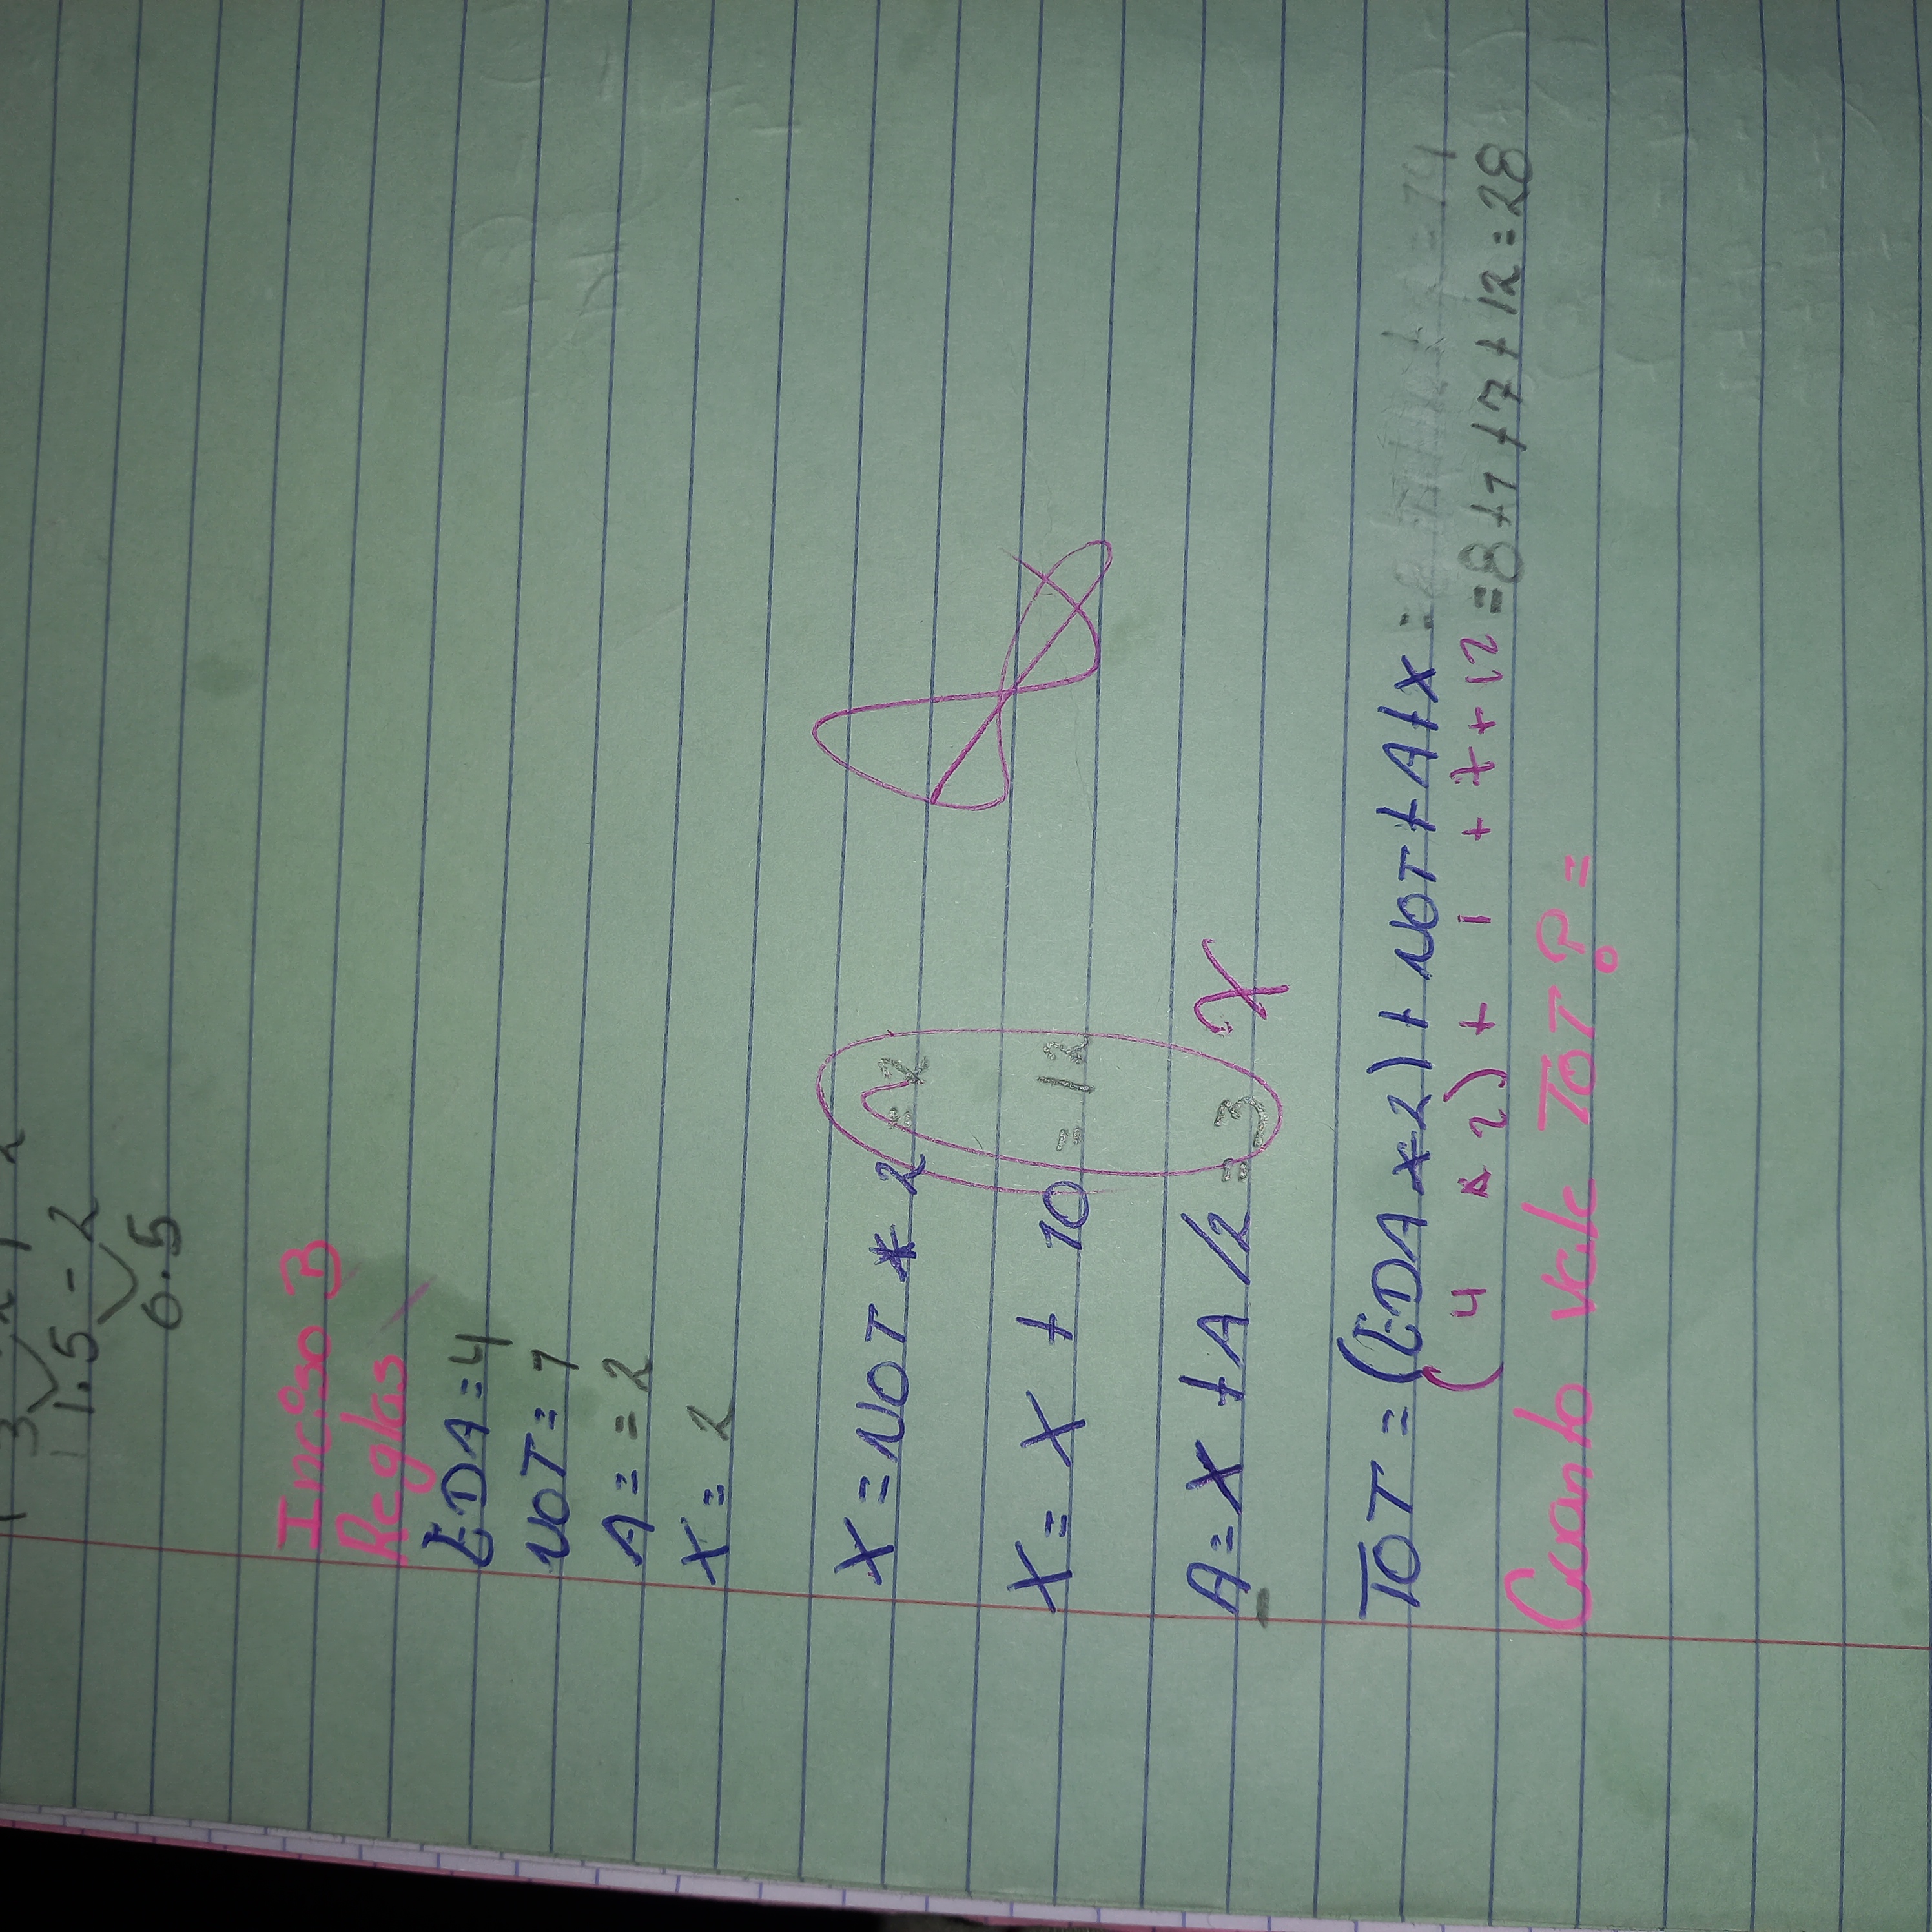 1.5 - 2
0.5
Inciso B
Reglas
EDA = 4
NOT = 1
A = 2
X = 2
X = NOT * 2 = 2
X = X + 10 = 12
A = X + A / 2 = 3
TOT = (EDA * 2) + NOT + A + X =
(4 * 2) + 1 + 7 + 12 = 8 + 1 + 7 + 12 = 28
Cuanto vale TOT? =